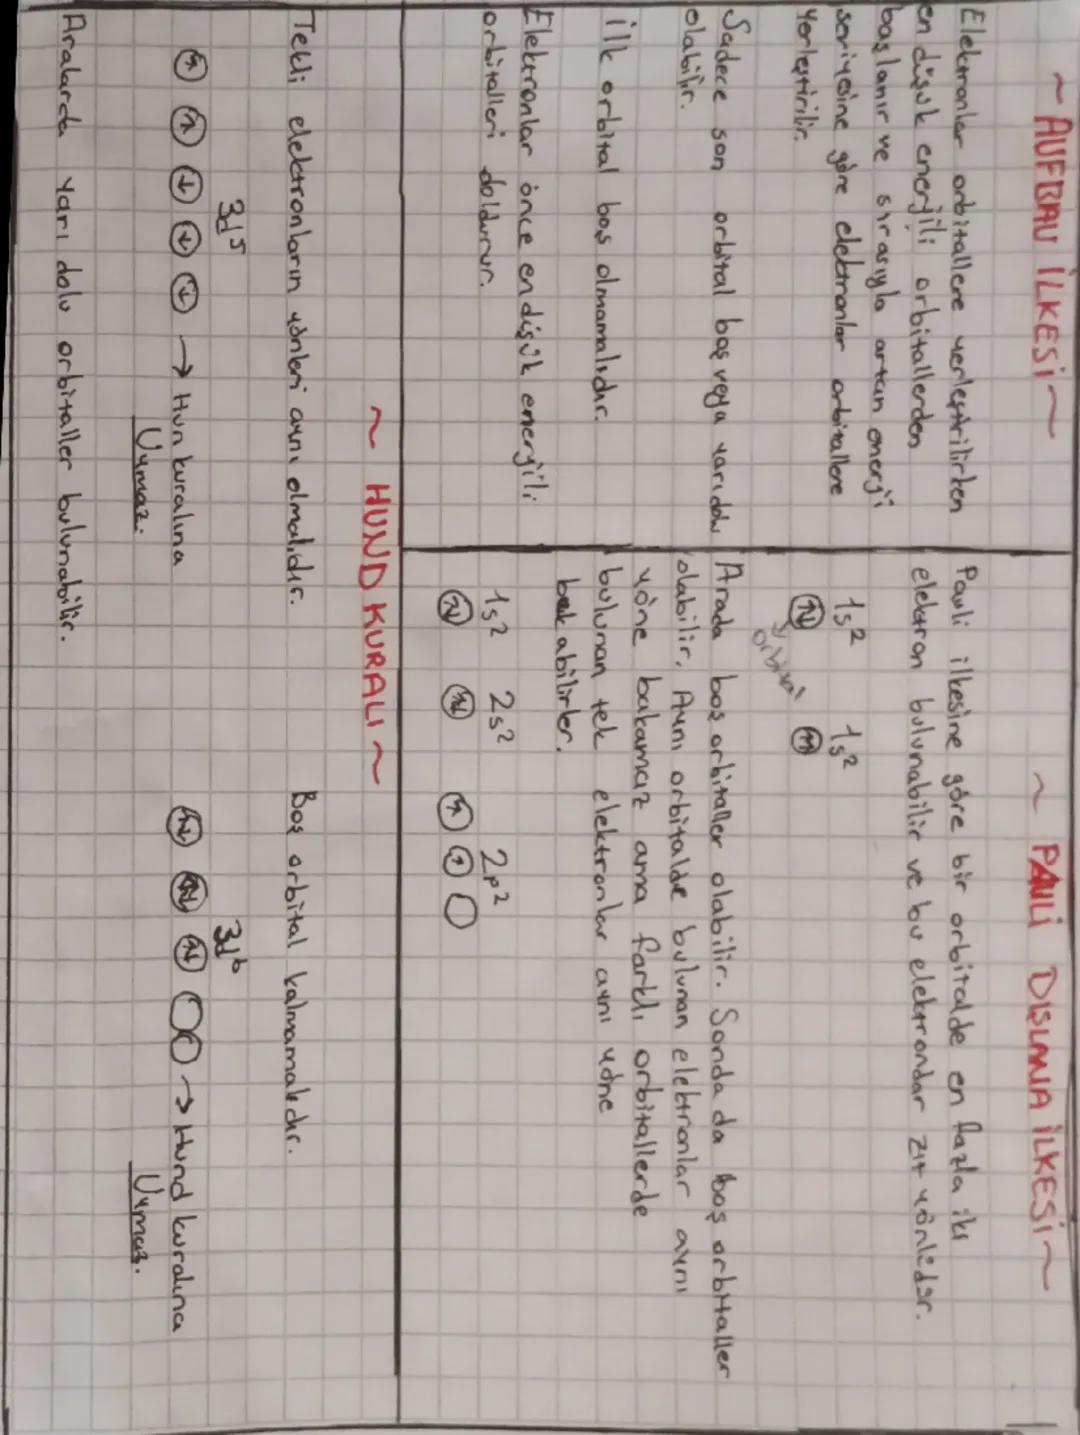 ~ AUFBAU İLKESİ ~
Elektronlar orbitallere yerleştirilirken
en düşük enerjili orbitallerden
başlanır ve sırasıyla artan enerji
seviyesine göre elektronlar orbitallere
yerleştirilir.
Sadece son orbital boş veya yarı dolu
olabilir.
İlk orbital boş olmamalıdır.
Elektronlar önce en düşük enerjili
orbitalleri doldurur.
~ PAULİ DIŞLAMA İLKESİ ~
Pauli ilkesine göre bir orbitalde en fazla iki
elektron bulunabilir ve bu elektronlar zıt yönlüdür.
1s² 1s²
orbital
Arada boş orbitaller olabilir. Sonda da boş orbitaller
olabilir. Aynı orbitalde bulunan elektronlar aynı
yöne bakamaz ama farklı orbitallerde
bulunan tek elektronlar aynı yöne
bakabilirler.
1s² 2s² 2p²
~ HUND KURALI ~
Tekli elektronların yönleri aynı olmalıdır.
3d⁵
→ Hun kuralına
Uymaz.
Boş orbital kalmamalıdır.
3d⁶
→ Hund kuralına
Uymaz.
Aralarda yarı dolu orbitaller bulunabilir.